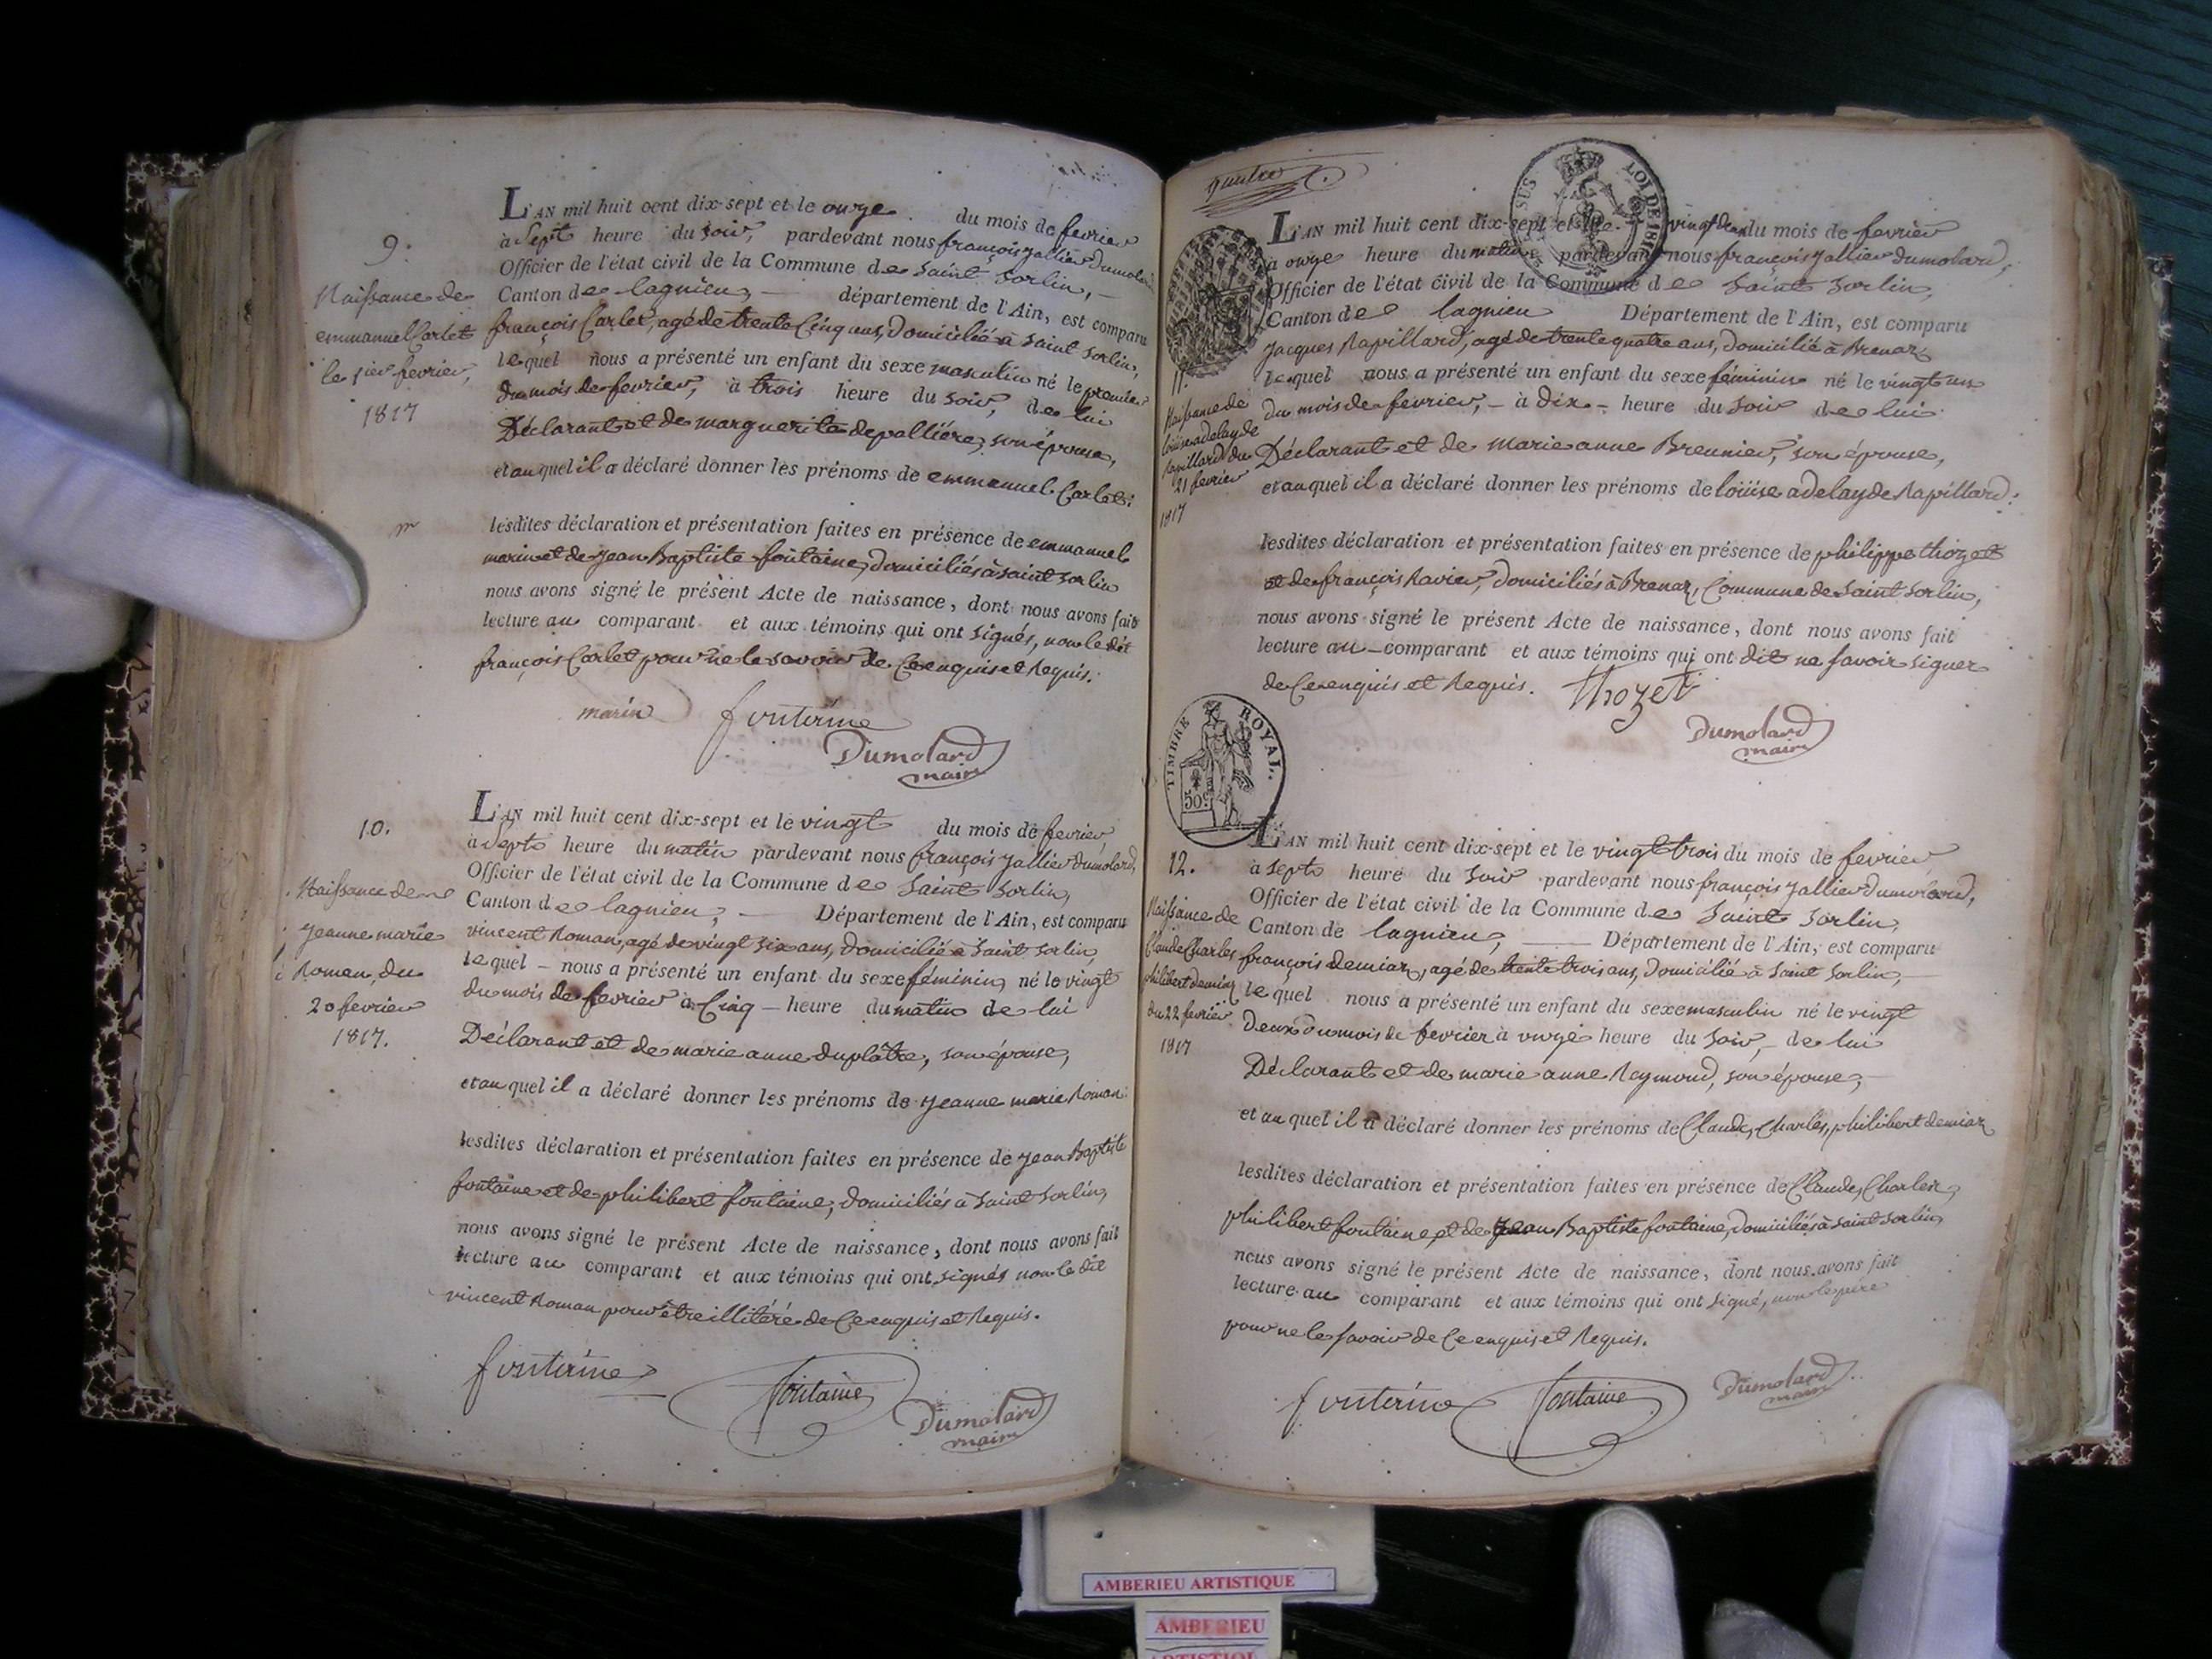 9.
Naissance de
emmanuel Carlet
le 1er fevrier,
1817
L'AN mil huit cent dix-sept et le onze du mois de fevrier
à Sept heure du soir, pardevant nous françois jallier dumolard
Officier de l'état civil de la Commune de Saint Sorlin, —
Canton de lagnieu, — département de l'Ain, est comparu
françois Carlet, agé de trente Cinq ans, domicilié à Saint Sorlin,
lequel nous a présenté un enfant du sexe masculin né le premier
du mois de fevrier, à trois heure du soir, de lui
Déclarant et de marguerite depallière, son épouse,
et auquel il a déclaré donner les prénoms de emmanuel Carlet:
lesdites déclaration et présentation faites en présence de emmanuel
marin et de jean Baptiste fontaine, domiciliés à saint sorlin
nous avons signé le présent Acte de naissance, dont nous avons fait
lecture au comparant et aux témoins qui ont signés, non le dit
françois Carlet pour ne le savoir de Ce enquis et Requis.
marin fontaine
Dumolard
maire
10.
Naissance de
jeanne marie
Roman, du
20 fevrier
1817.
L'AN mil huit cent dix-sept et le vingt du mois de fevrier
à Sept heure du matin pardevant nous françois jallier dumolard,
Officier de l'état civil de la Commune de Saint Sorlin,
Canton de lagnieu, — Département de l'Ain, est comparu
vincent Roman, agé de vingt six ans, domicilié à Saint Sorlin,
lequel – nous a présenté un enfant du sexe féminin, né le vingt
du mois de fevrier à Cinq – heure du matin de lui
Déclarant et de marie anne duplâtre, son épouse,
et auquel il a déclaré donner les prénoms de jeanne marie Roman:
lesdites déclaration et présentation faites en présence de jean Baptiste
fontaine et de philibert fontaine, domiciliés à Saint Sorlin,
nous avons signé le présent Acte de naissance, dont nous avons fait
lecture au comparant et aux témoins qui ont signés non le dit
vincent Roman pour être illitéré de Ce enquis et Requis.
fontaine fontaine Dumolard
maire
quatre
SUS LOI DE 181
11.
Naissance de
loüise adelayde
Ravillard du
21 fevrier
1817
L'AN mil huit cent dix-sept et le vingt deux du mois de fevrier
à onze heure du matin pardevant nous françois jallier dumolard,
Officier de l'état civil de la Commune de Saint Sorlin,
Canton de lagnieu Département de l'Ain, est comparu
Jacques Ravillard, agé de trente quatre ans, domicilié à Brenaz
lequel nous a présenté un enfant du sexe féminin né le vingt un
du mois de fevrier, – à dix – heure du soir de lui
Déclarant et de marie anne Breunier, son épouse,
et auquel il a déclaré donner les prénoms de loüise adelayde Ravillard:
lesdites déclaration et présentation faites en présence de philippe thozet
et de françois Ravier, domiciliés à Brenaz, Commune de Saint Sorlin,
nous avons signé le présent Acte de naissance, dont nous avons fait
lecture au – comparant et aux témoins qui ont dit ne savoir signer
de Ce enquis et Requis. thozet
Dumolard
maire
TIMBRE ROYAL.
50c
12.
Naissance de
Claude Charles
philibert demiaz
du 22 fevrier
1817
L'AN mil huit cent dix-sept et le vingt trois du mois de fevrier
à sept heure du soir pardevant nous françois jallier dumolard,
Officier de l'état civil de la Commune de Saint Sorlin,
Canton de lagnieu, — Département de l'Ain, est comparu
françois demiaz, agé de trente trois ans, domicilié à Saint Sorlin, –
lequel nous a présenté un enfant du sexe masculin né le vingt
deux du mois de fevrier à onze heure du soir, – de lui
Déclarant et de marie anne Reymond, son épouse, –
et auquel il a déclaré donner les prénoms de Claude, Charles, philibert demiaz
lesdites déclaration et présentation faites en présence de Claude, Charles,
philibert fontaine, et de jean Baptiste fontaine, domiciliés à saint sorlin,
nous avons signé le présent Acte de naissance, dont nous avons fait
lecture au comparant et aux témoins qui ont signé, non le père
pour ne le savoir de Ce enquis et Requis.
fontaine fontaine Dumolard
maire
AMBERIEU ARTISTIQUE
AMBERIEU
ARTISTIQUE